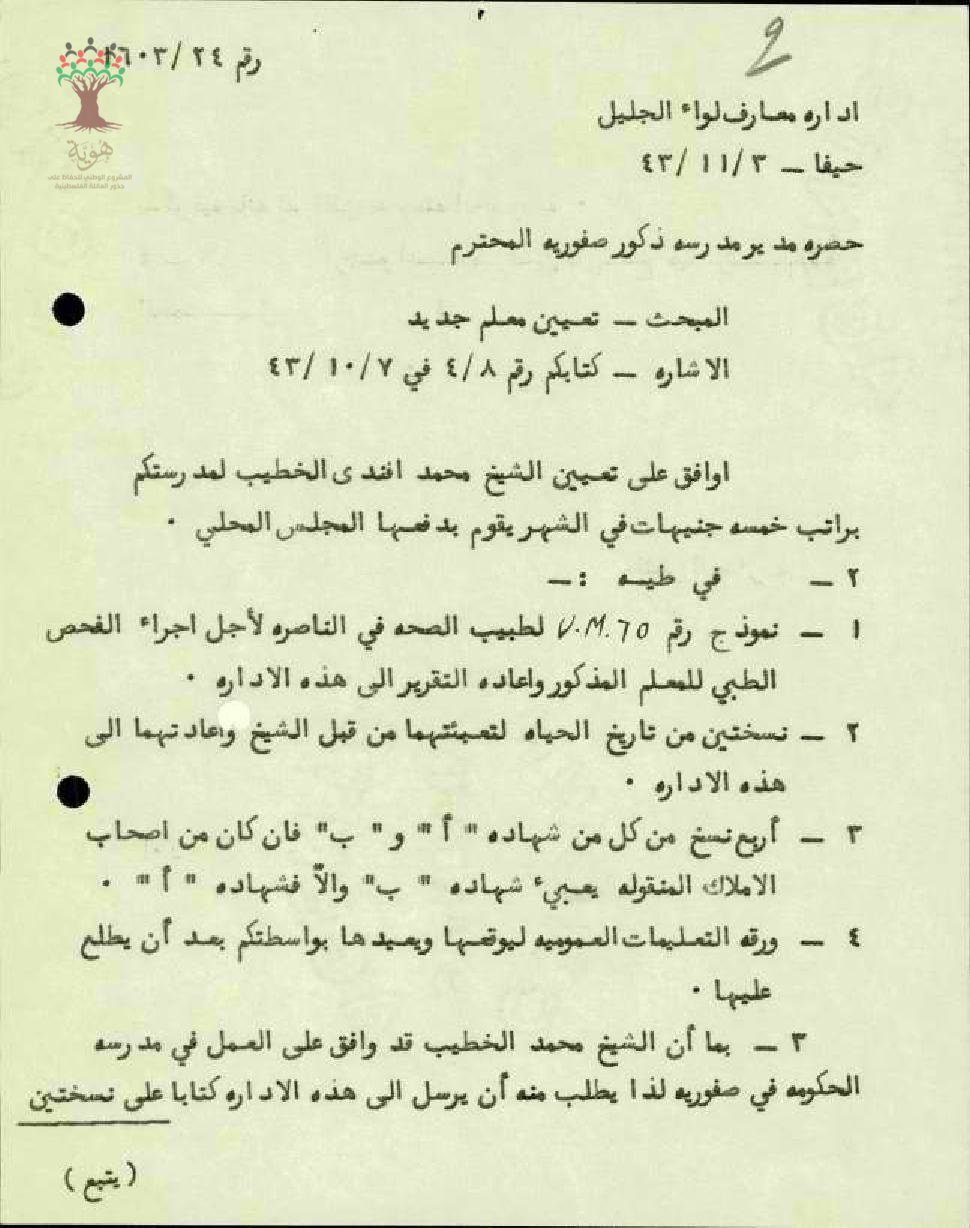 2
رقم ٢٤ /٢٦٠٣
هُوِيَّة
المشروع الوطني للحفاظ على
جذور العائلة الفلسطينية
اداره معارف لواء الجليل
حيفا – ٣ /١١/ ٤٣
حضره مدير مدرسه ذكور صفوريه المحترم
المبحث – تعيين معلم جديد
الاشاره – كتابكم رقم ٤/٨ في ١٠/٧/ ٤٣
اوافق على تعيين الشيخ محمد افندى الخطيب لمدرستكم
براتب خمسه جنيهات في الشهر يقوم بدفعها المجلس المحلي ٠
٢ – في طيه :–
١ – نموذج رقم V.M.60 لطبيب الصحه في الناصره لأجل اجراء الفحص
الطبي للمعلم المذكور واعاده التقرير الى هذه الاداره ٠
٢ – نسختين من تاريخ الحياه لتعبئتهما من قبل الشيخ واعادتهما الى
هذه الاداره ٠
٣ – أربع نسخ من كل من شهاده " أ " و " ب" فان كان من اصحاب
الاملاك المنقوله يعبيء شهاده " ب" والاّ فشهاده " أ " ٠
٤ – ورقه التعليمات العموميه ليوقعها ويعيدها بواسطتكم بعد أن يطلع
عليها ٠
٣ – بما أن الشيخ محمد الخطيب قد وافق على العمل في مدرسه
الحكومه في صفوريه لذا يطلب منه أن يرسل الى هذه الاداره كتابا على نسختين
(يتبع )